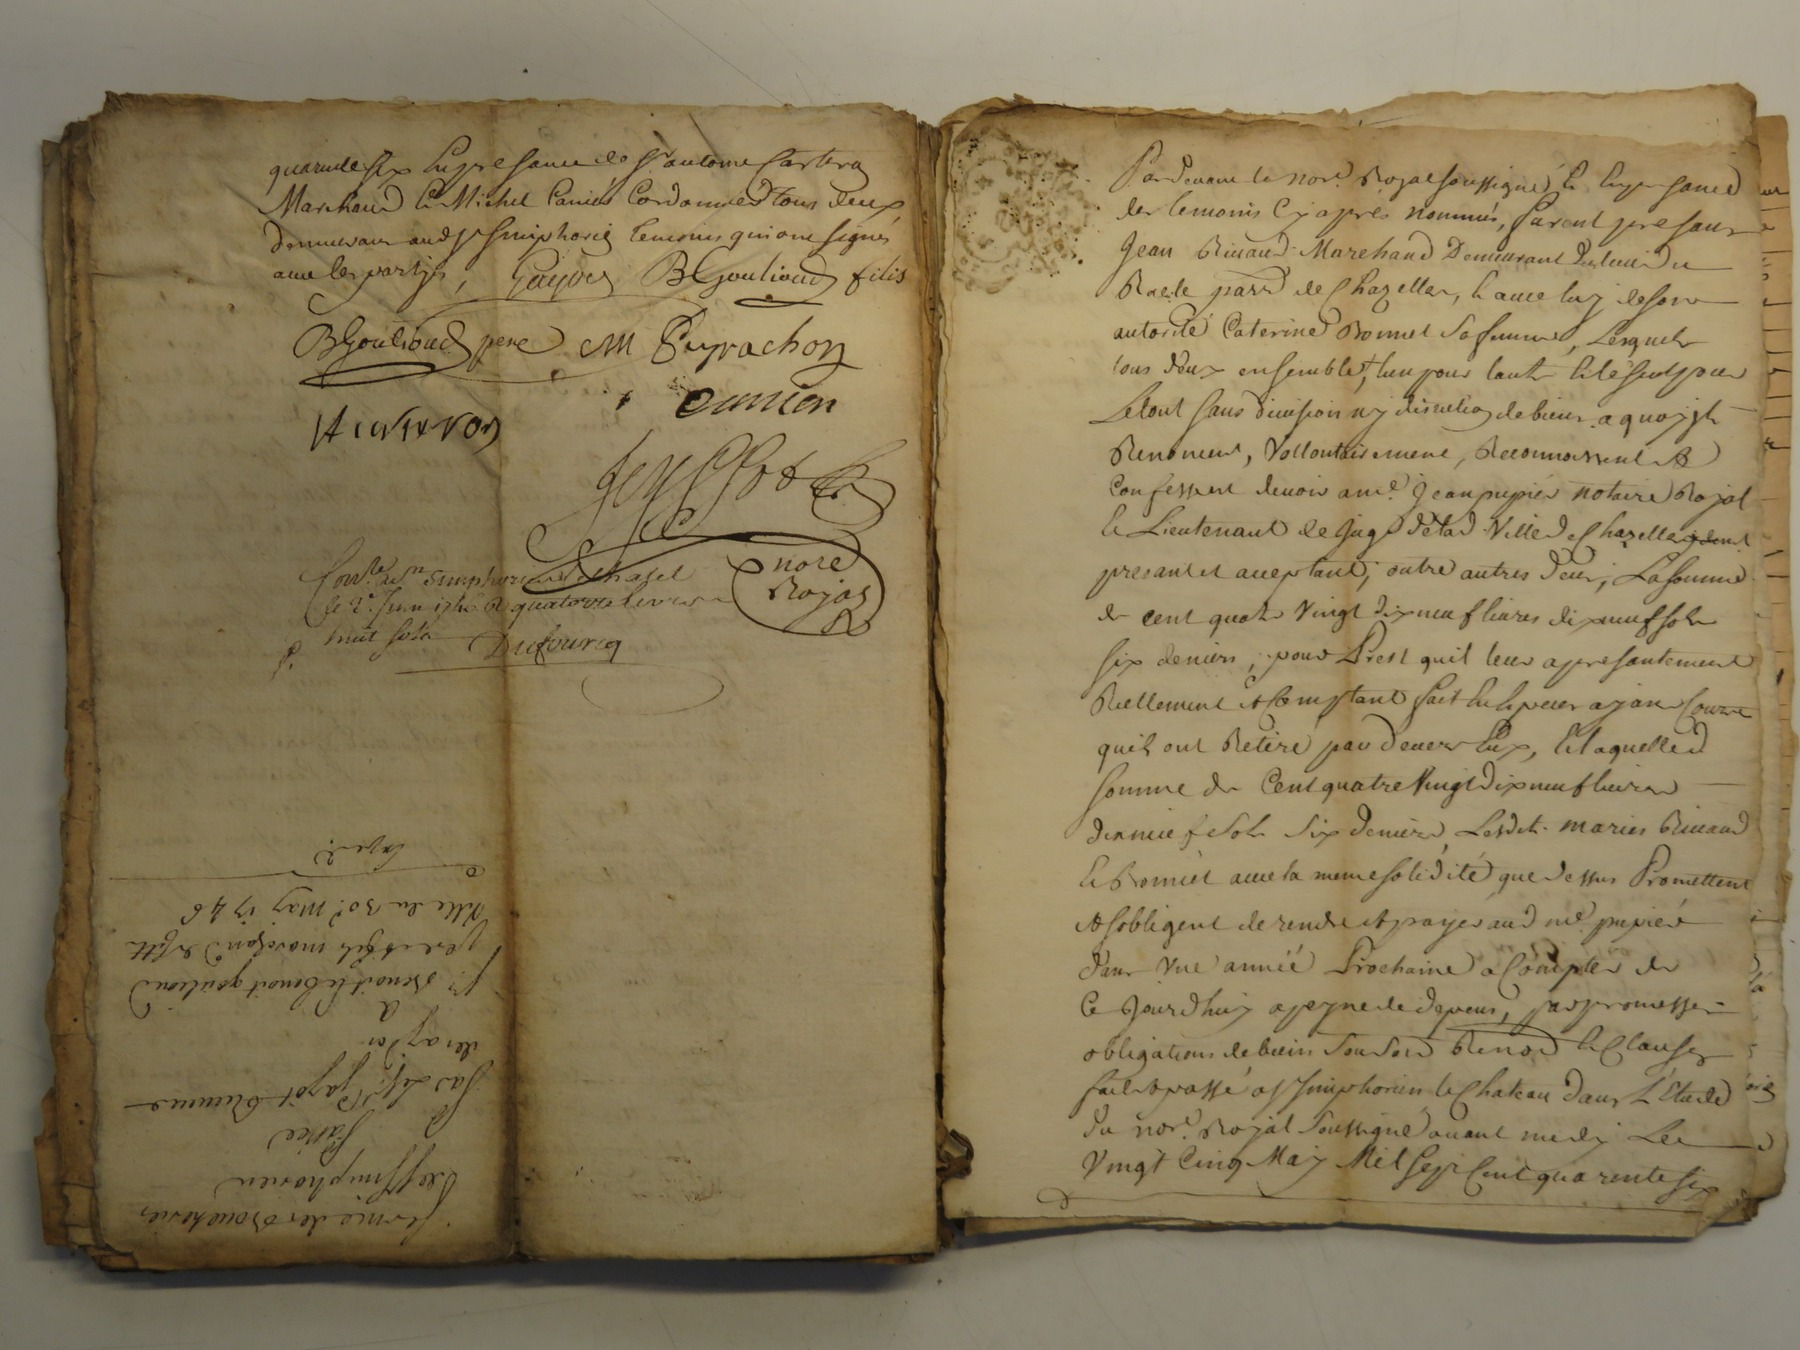 quarante six En presance de Sr antoine
Marchand Et Michel Cordonnier tous deux
demeurant aud St Simphorien temoins qui ont signés
avec les partyes, Guyot BGoutioud filis
BGoutioud pere M Peyrachon
nore
Royal
Conlle a St Simphorien Le chatel
le 2e Juin 1746 R quatorze livres
huit sols
Dufourcq
ferme des Boucheries
de St Simphorien
Passée
Par
a
Sr Benoit Et Benoit goutioud
pere et fils marchand
Ville du 30e may 1746
Pardevant le nore. Royal soussigné Et En presance
des temoins Cy après nommés, furent presans
Jean Rivaud Marchand Demeurant du lieu du
parr de Chazelles, Et avec luy de son
autorité Caterine Bonnet Sa femme, Lesquels
tous deux ensemblet, l'un pour l'autre Et le seul pour
Le tout sans division ny discution de biens a quoy ils
Renoncent, Vollontairement, Reconnoissent Et
Confessent devoir a me. Jean pupier notaire Royal
Et Lieutenant de Juge de lad. Ville de Chazelles
presant et acceptant; outre autres deux; La somme
de cent quatre Vingt dix neuf livres dix neuf sols
six deniers, pour Prest quil leur a presantement
Reellement Et Comptant fait En Especes ayant Cours
quils ont Retiré par devers Eux, Et laquelle
somme de Cent quatre Vingt dix neuf livres
dix neuf sols six deniers, Lesdits mariés Rivaud
Et Bonnet avec la meme solidité que dessus Promettent
Et sobligent de rendre Et payer aud me. pupier
dans Vne année Prochaine a Compter de
Ce Jourdhuy a peyne de depens, par promesses
obligations de biens Soumissions Renon Et Clauses
fait Et passé a St Simphorien le Chateau dans L'Etude
du nore. Royal Soussigné avant midy Le
Vingt Cinq May Mil Sept Cent quarente six